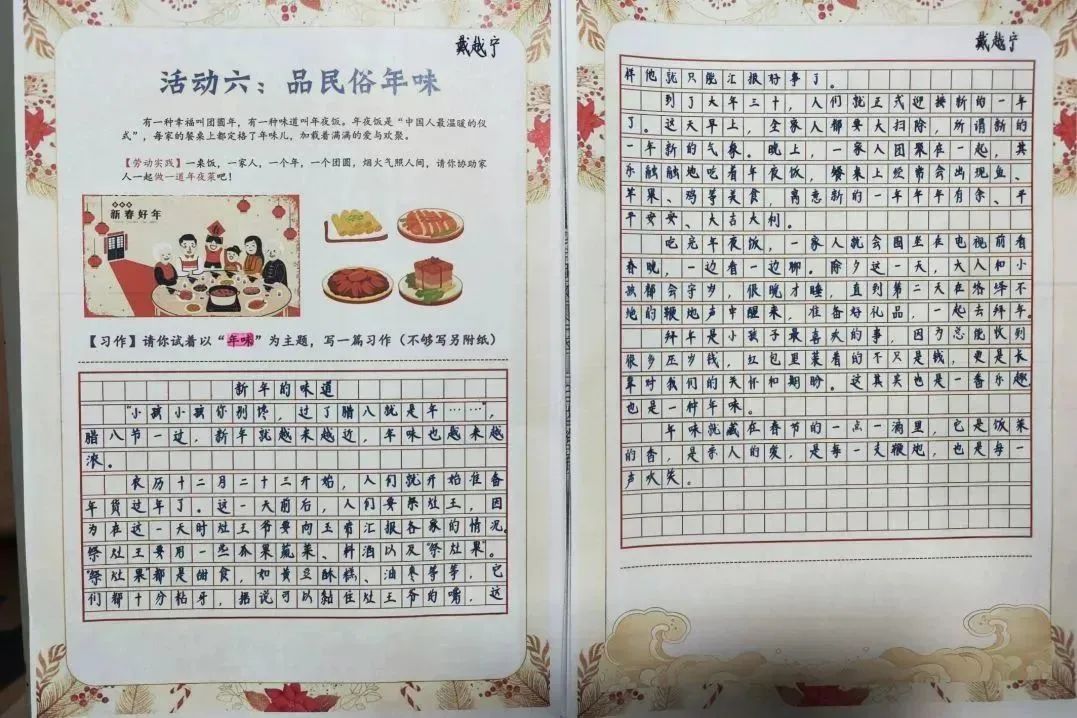 戴越宁
活动六：品民俗年味
有一种幸福叫团圆年，有一种味道叫年夜饭。年夜饭是“中国人最温暖的仪
式”，每家的餐桌上都定格了年味儿，加载着满满的爱与欢聚。
【劳动实践】一桌饭，一家人，一个年，一个团圆，烟火气照人间，请你协助家
人一起做一道年夜菜吧！
新春好年
【习作】请你试着以“年味”为主题，写一篇习作（不够写另附纸）
新年的味道
“小孩小孩你别馋，过了腊八就是年……”，
腊八节一过，新年就越来越近，年味也越来越
浓。
农历十二月二十三开始，人们就开始准备
年货过年了。这一天前后，人们要祭灶王，因
为在这一天时灶王爷要向玉帝汇报各家的情况。
祭灶王要用一些瓜果蔬菜、料酒以及“祭灶果”。
“祭灶果都是甜食，如黄豆酥糕、油枣等等，它
们都十分粘牙，据说可以黏住灶王爷的嘴，这
戴越宁
样他就只能汇报好事了。
到了大年三十，人们就正式迎接新的一年
了。这天早上，全家人都要大扫除，所谓新的
一年新的气象。晚上，一家人团聚在一起，其
乐融融地吃着年夜饭，餐桌上经常会出现鱼、
苹果、鸡等美食，寓意新的一年年年有余、平
平安安、大吉大利。
吃完年夜饭，一家人就会围坐在电视前看
春晚，一边看一边聊。除夕这一天，大人和小
孩都会守岁，很晚才睡，直到第二天在络绎不
地的鞭炮声中醒来，准备好礼品，一起去拜年。
拜年是小孩子最喜欢的事，因为总能收到
很多压岁钱，红包里装着的不只是钱，更是长
辈对我们的关怀和期盼。这其实也是一番乐趣
也是一种年味。
年味就藏在春节的一点一滴里，它是饭菜
的香，是亲人的爱，是每一支鞭炮，也是每一
声欢笑。